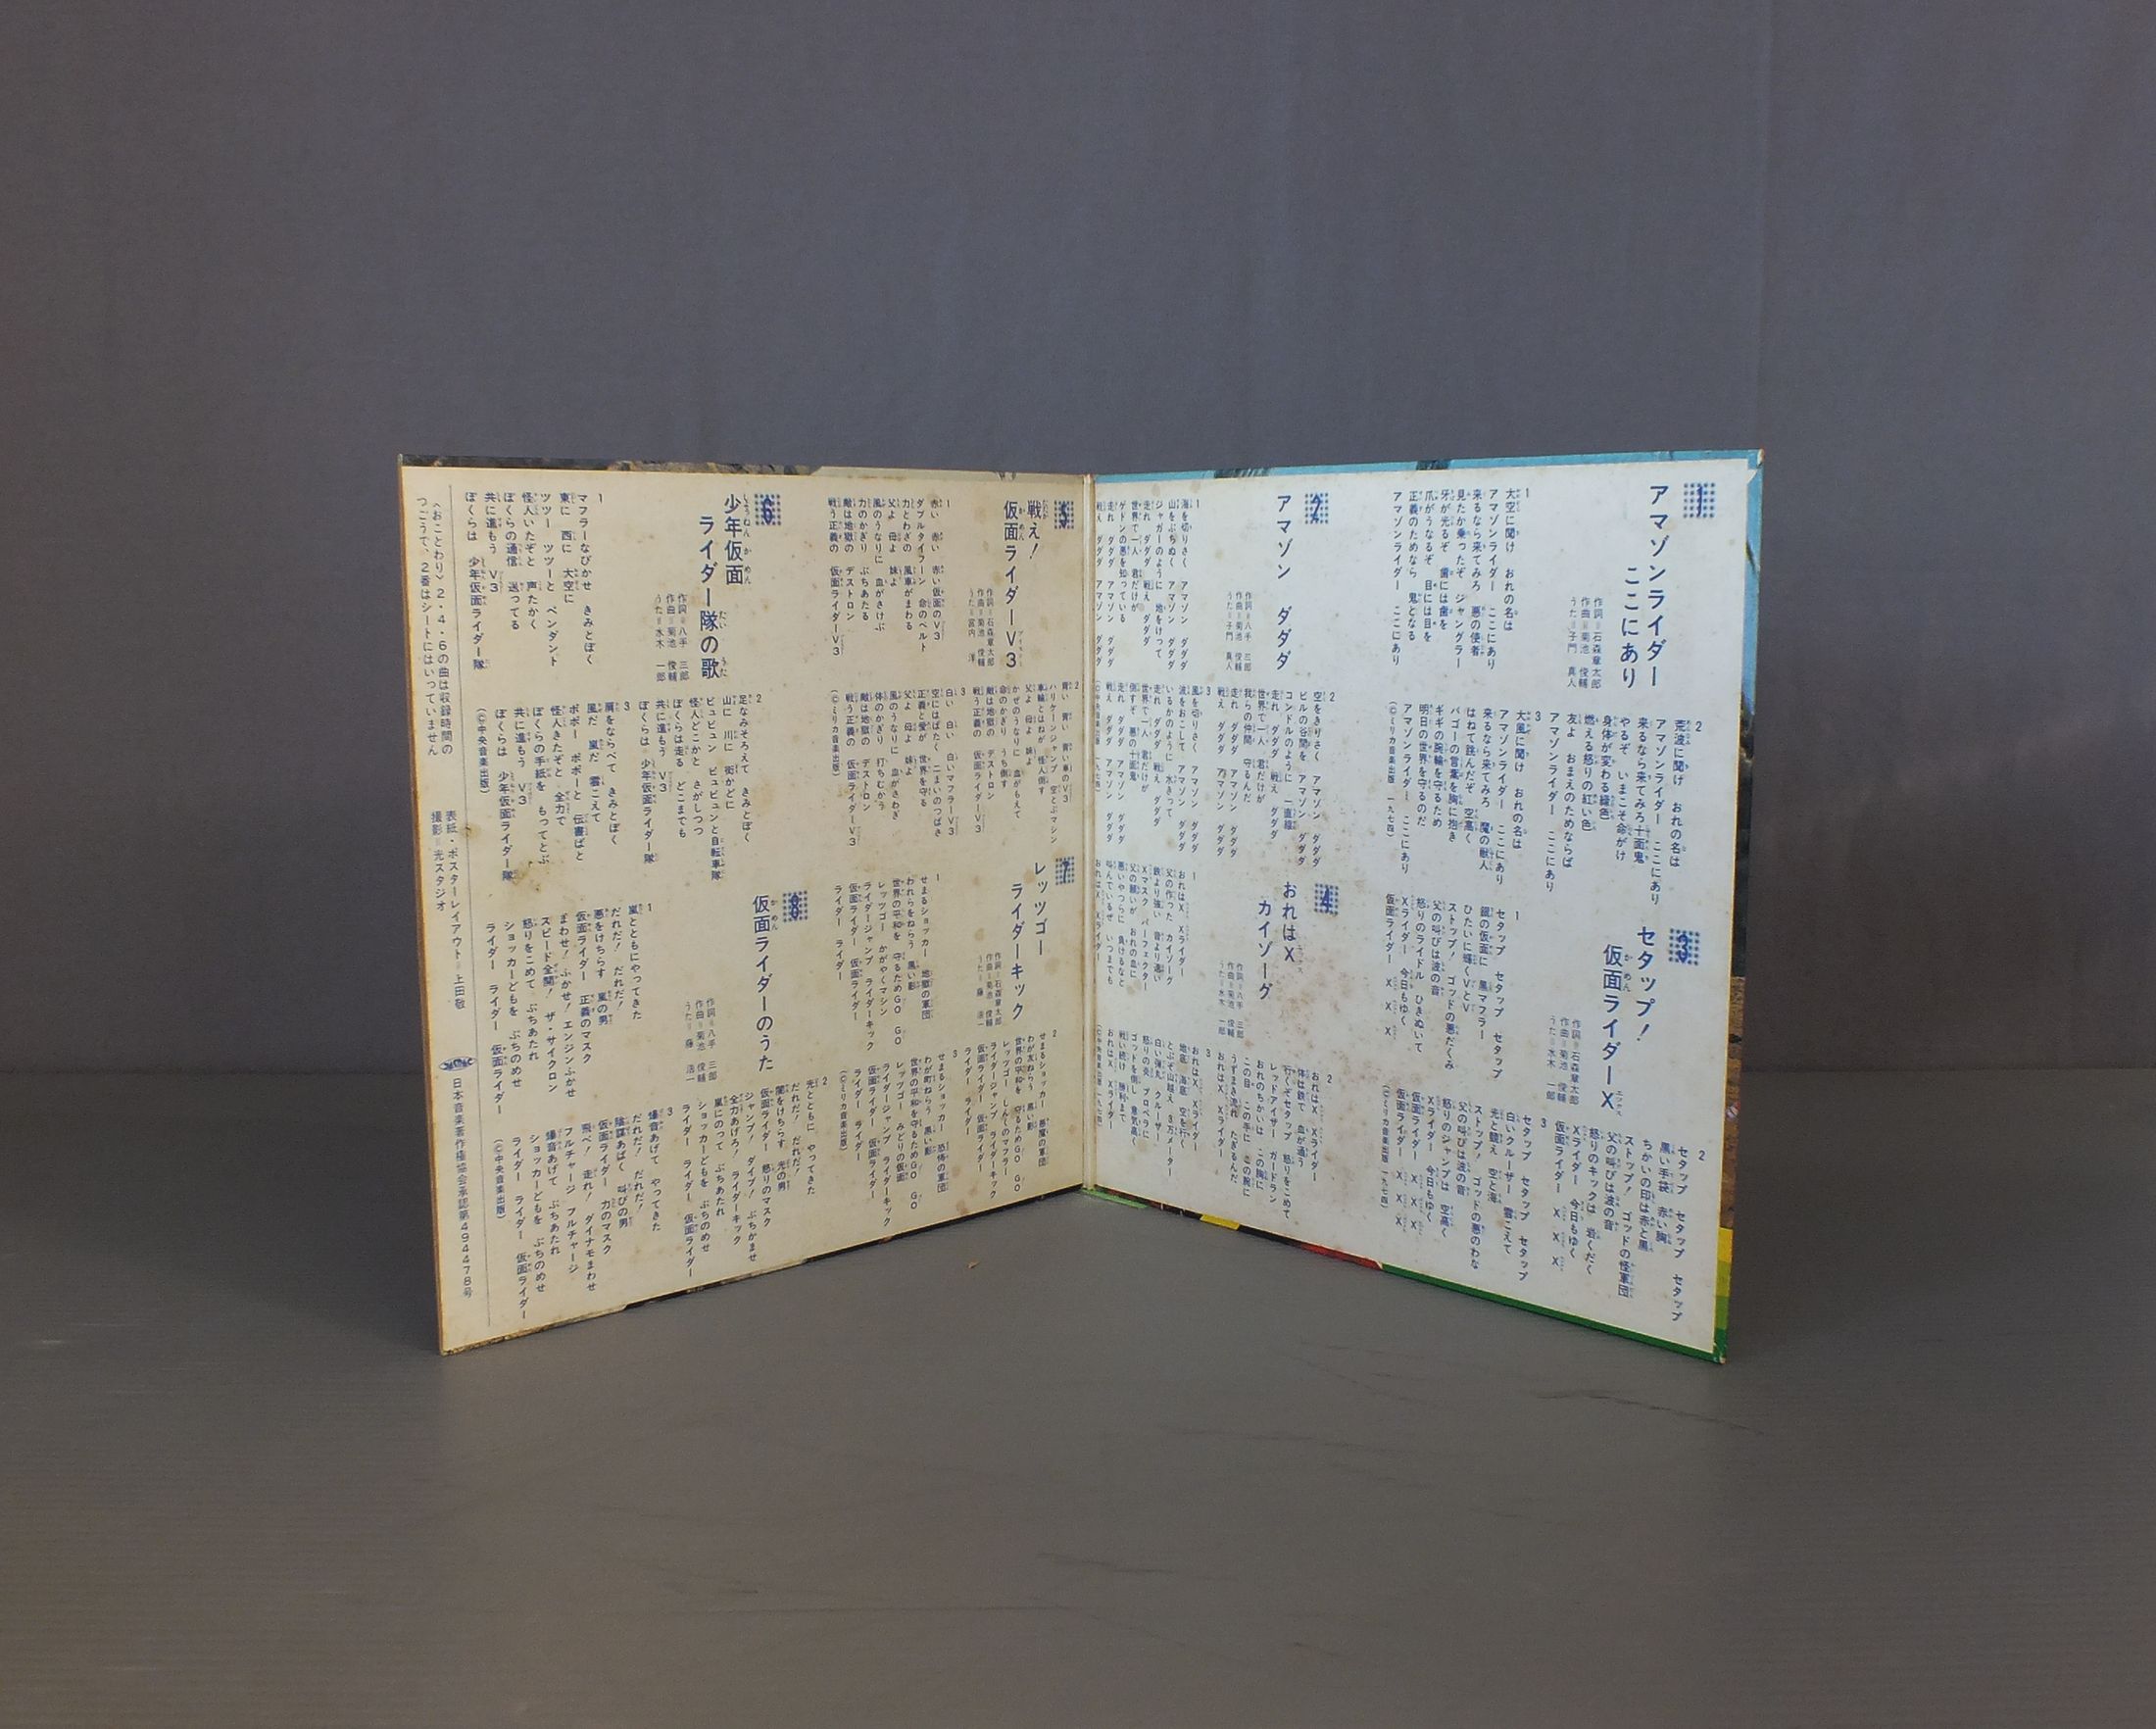 1
アマゾンライダー
ここにあり
作詞=石森章太郎
作曲=菊池 俊輔
うた=子門 真人
1
大空に聞け おれの名は
アマゾンライダー ここにあり
来るなら来てみろ 悪の使者
見たか乗ったぞ ジャングラー
牙が光るぞ 歯には歯を
爪がうなるぞ 目には目を
正義のためなら 鬼となる
アマゾンライダー ここにあり
2
荒波に聞け おれの名は
アマゾンライダー ここにあり
来るなら来てみろ十面鬼
やるぞ いまこそ命がけ
身体が変わる緑色
燃える怒りの紅い色
友よ おまえのためならば
アマゾンライダー ここにあり
3
大風に聞け おれの名は
アマゾンライダー ここにあり
来るなら来てみろ 魔の獣人
はねて跳んだぞ 空高く
バゴーの言葉を胸に抱き
ギギの腕輪を守るため
明日の世界を守るのだ
アマゾンライダー ここにあり
(©ミリカ音楽出版 一九七四)
2
アマゾン ダダダ
作詞=八手 三郎
作曲=菊池 俊輔
うた=子門 真人
1
海を切りさく アマゾン ダダダ
山をぶちぬく アマゾン ダダダ
ジャガーのように 地をけって
走れ ダダダ 戦え ダダダ
世界で一人 君だけが
ゲドンの悪を知っている
走れ ダダダ アマゾン ダダダ
戦え ダダダ アマゾン ダダダ
2
空をきりさく アマゾン ダダダ
ビルの谷間を アマゾン ダダダ
コンドルのように 一直線
走れ ダダダ 戦え ダダダ
世界で一人 君だけが
我らの仲間 守るんだ
走れ ダダダ アマゾン ダダダ
戦え ダダダ アマゾン ダダダ
3
風を切りさく アマゾン ダダダ
波をおこして アマゾン ダダダ
いるかのように 水きって
走れ ダダダ 戦え ダダダ
世界で一人 君だけが
倒すぞ 悪の十面鬼
走れ ダダダ アマゾン ダダダ
戦え ダダダ アマゾン ダダダ
(©中央音楽出版 一九七四)
3
セタップ!
仮面ライダーX
作詞=石森章太郎
作曲=菊池 俊輔
うた=水木 一郎
1
セタップ セタップ セタップ
銀の仮面に 黒マフラー
ひたいに輝くVとV
ストップ! ゴッドの悪だくみ
父の叫びは波の音
怒りのライドル ひきぬいて
Xライダー 今日もゆく
仮面ライダー X X X
2
セタップ セタップ セタップ
黒い手袋 赤い胸
ちかいの印は赤と黒
ストップ! ゴッドの怪軍団
父の叫びは波の音
怒りのキックは 岩くだく
Xライダー 今日もゆく
仮面ライダー X X X
3
セタップ セタップ セタップ
白いクルーザー 雲こえて
光と競え 空と海
ストップ! ゴッドの悪のわな
父の叫びは波の音
怒りのジャンプは 空高く
Xライダー 今日もゆく
仮面ライダー X X X
仮面ライダー X X X
(©ミリカ音楽出版 一九七四)
4
おれはX
カイゾーグ
作詞=八手 三郎
作曲=菊池 俊輔
うた=水木 一郎
1
おれはX Xライダー
父の作った カイゾーグ
鉄より強い 音より速い
Xマスク パーフェクター
父の願いが おれの血に
悪いやつらに 負けるなと
叫んでいるぜ いつまでも
おれはX Xライダー
2
おれはX Xライダー
体は鉄で 血が通う
行くぞセタップ 怒りをこめて
レッドアイザー ガードラン
おれのちかいは この胸に
この目 この手に この腕に
うずまき流れ たぎるんだ
おれはX Xライダー
3
おれはX Xライダー
地底 海底 空を行く
とぶぞ山越え 3万メーター
白い弾丸 クルーザー
怒りの炎 プロペラに
ゴッドを倒し 意気高く
戦い続け 勝利まで
おれはX Xライダー
(©中央音楽出版 一九七四)
5
戦え!
仮面ライダーV3
作詞=石森章太郎
作曲=菊池 俊輔
うた=宮内 洋
1
赤い 赤い 赤い仮面のV3
ダブルタイフーン 命のベルト
力とわざの 風車がまわる
父よ 母よ 妹よ
風のうなりに 血がさけぶ
力のかぎり ぶちあたる
敵は地獄の デストロン
戦う正義の 仮面ライダーV3
2
青い 青い 青い車のV3
ハリケーンジャンプ 空とぶマシン
車輪とはねが 怪人倒す
父よ 母よ 妹よ
かぜのうなりに 血がもえて
命のかぎり うち倒す
敵は地獄の デストロン
戦う正義の 仮面ライダーV3
3
白い 白い 白いマフラーV3
空にはばたく 二まいのつばさ
正義と愛が 世界を守る
父よ 母よ 妹よ
風のうなりに 血がさわぎ
体のかぎり 打ちむかう
敵は地獄の デストロン
戦う正義の 仮面ライダーV3
(©ミリカ音楽出版)
6
少年仮面
ライダー隊の歌
作詞=八手 三郎
作曲=菊池 俊輔
うた=水木 一郎
1
マフラーなびかせ きみとぼく
東に 西に 大空に
ツツー ツツーと ペンダント
怪人いたぞと 声たかく
ぼくらの通信 送ってる
共に進もう V3
ぼくらは 少年仮面ライダー隊
2
足なみそろえて きみとぼく
山に 川に 街かどに
ビュビュン ビュビュンと自転車隊
怪人どこかと さがしつつ
ぼくらは走る どこまでも
共に進もう V3
ぼくらは 少年仮面ライダー隊
3
肩をならべて きみとぼく
風だ 嵐だ 雲こえて
ポポー ポポーと 伝書ばと
怪人きたぞと 全力で
ぼくらの手紙を もってとぶ
共に進もう V3
ぼくらは 少年仮面ライダー隊
(©中央音楽出版)
7
レッツゴー
ライダーキック
作詞=石森章太郎
作曲=菊池 俊輔
うた=藤 浩一
1
せまるショッカー 地獄の軍団
われらをねらう 黒い影
世界の平和を 守るためGO GO
レッツゴー かがやくマシン
ライダージャンプ ライダーキック
仮面ライダー 仮面ライダー
ライダー ライダー
2
せまるショッカー 悪魔の軍団
わが友ねらう 黒い影
世界の平和を 守るためGO GO
レッツゴー しんくのマフラー
ライダージャンプ ライダーキック
仮面ライダー 仮面ライダー
ライダー ライダー
3
せまるショッカー 恐怖の軍団
わが町ねらう 黒い影
世界の平和を守るためGO GO
レッツゴー みどりの仮面
ライダージャンプ ライダーキック
仮面ライダー 仮面ライダー
ライダー ライダー
(©ミリカ音楽出版)
8
仮面ライダーのうた
作詞=八手 三郎
作曲=菊池 俊輔
うた=藤 浩一
1
嵐とともにやってきた
だれだ! だれだ!
悪をけちらす 嵐の男
仮面ライダー 正義のマスク
まわせ! ふかせ! エンジンふかせ
スピード全開! ザ・サイクロン
怒りをこめて ぶちあたれ
ショッカーどもを ぶちのめせ
ライダー ライダー 仮面ライダー
2
光とともに やってきた
だれだ! だれだ!
闇をけちらす 光の男
仮面ライダー 怒りのマスク
ジャンプ! ダイブ! ぶちかませ
全力あげろ! ライダーキック
嵐にのって ぶちあたれ
ショッカーどもを ぶちのめせ
ライダー ライダー 仮面ライダー
3
爆音あげて やってきた
だれだ! だれだ!
陰謀あばく 叫びの男
仮面ライダー 力のマスク
飛べ! 走れ! ダイナモまわせ
フルチャージ フルチャージ
爆音あげて ぶちあたれ
ショッカーどもを ぶちのめせ
ライダー ライダー 仮面ライダー
(©中央音楽出版)
〈おことわり〉2・4・6の曲は収録時間の
つごうで、2番はシートにはいっていません
表紙・ポスターレイアウト=上田敬
撮影=光スタジオ
日本音楽著作権協会承認第494478号